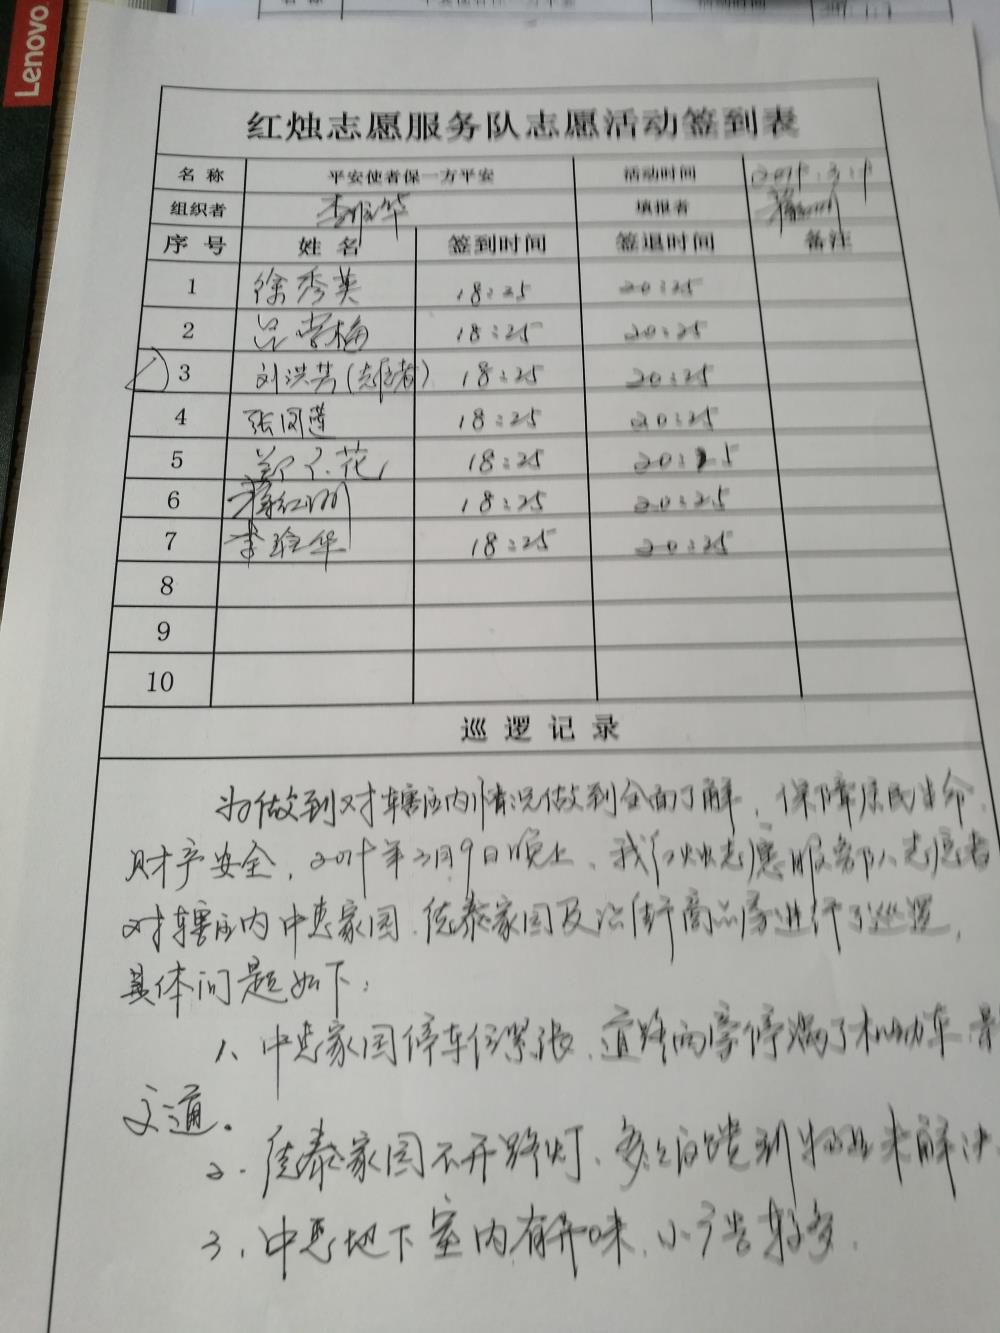 Lenovo
红烛志愿服务队志愿活动签到表
名 称 平安使者保一方平安 活动时间
组织者 填报者
序 号 姓 名 签到时间 签退时间 备注
1 徐秀英 18:25 20:25
2 吕雪梅 18:25 20:25
3 刘洪芳(志愿者) 18:25 20:25
4 张凤莲 18:25 20:25
5 花 18:25 20:25
6 红 18:25 20:25
7 李 华 18:25 20:25
8
9
10
巡 逻 记 录
为做到对辖区内情况做到全面了解,保障居民生命
财产安全, 年3月9日晚上、我红烛志愿服务队志愿者
对辖区内中惠家园、德泰家园及沿街商品房进行了巡逻,
具体问题如下:
1、中惠家园停车位紧张、道路两旁停满了机动车影
交通。
2、德泰家园不开路灯、多次反馈到物业未解决
3、中惠地下室内有异味、小广告较多.